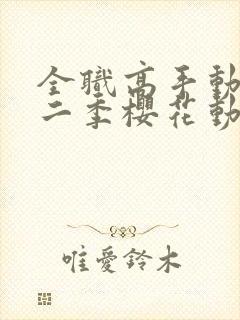 全職高手動
二季櫻花動
唯愛鈴木